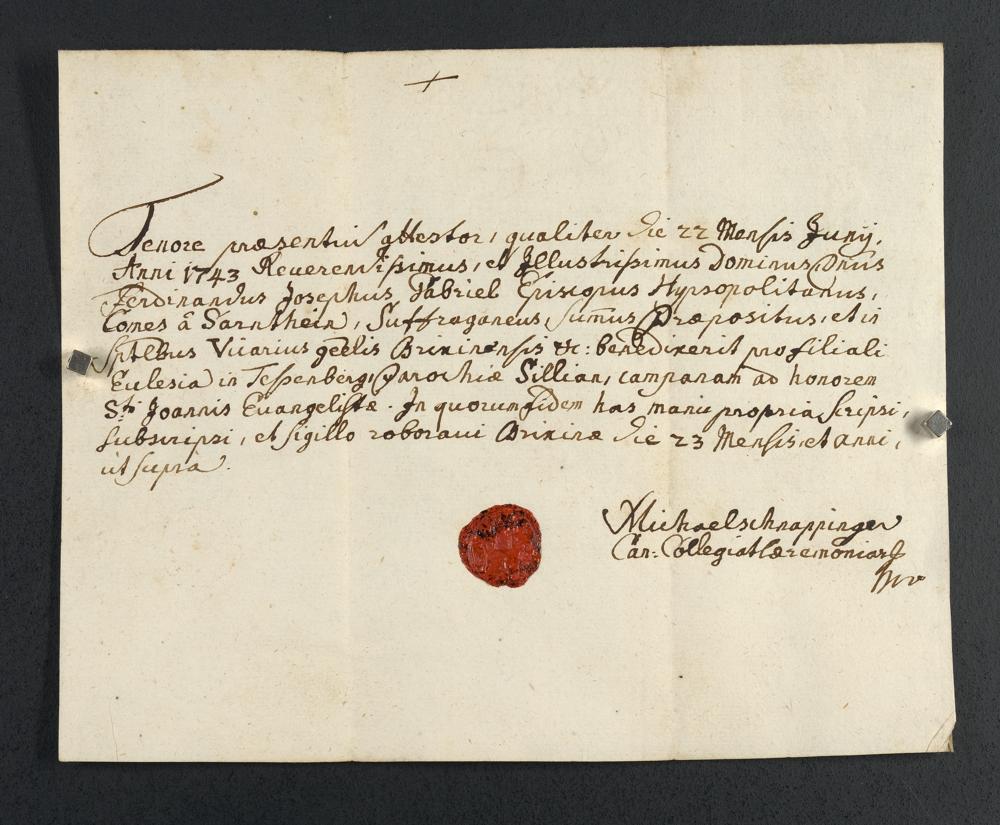 +
Tenore præsentiu attestor, qualiter die 22 Mensis Junij,
Anni 1743 Reuerendissimus, et Jllustrissimus Dominus Dnus
Ferdinandus Josephus Gabriel Episcopus Hypsopolitanus,
Comes â Sarnthein, Suffraganeus, sumus Præpositus, et in
sptlbus Vicarius gñlis Brixinensis &c: benedixerit pro filiali
Eccelesia in Tessenberg, Parochiæ Sillian, campanam ad honorem
S:ti Joannis Euangelistæ. Jn quorum fidem has manu propria scripsi,
subscripsi, et sigillo roboraui Brixinæ die 23 Mensis, et anni,
ut supra.
Michael schnappinger
Can: Collegiat Cæremoniar